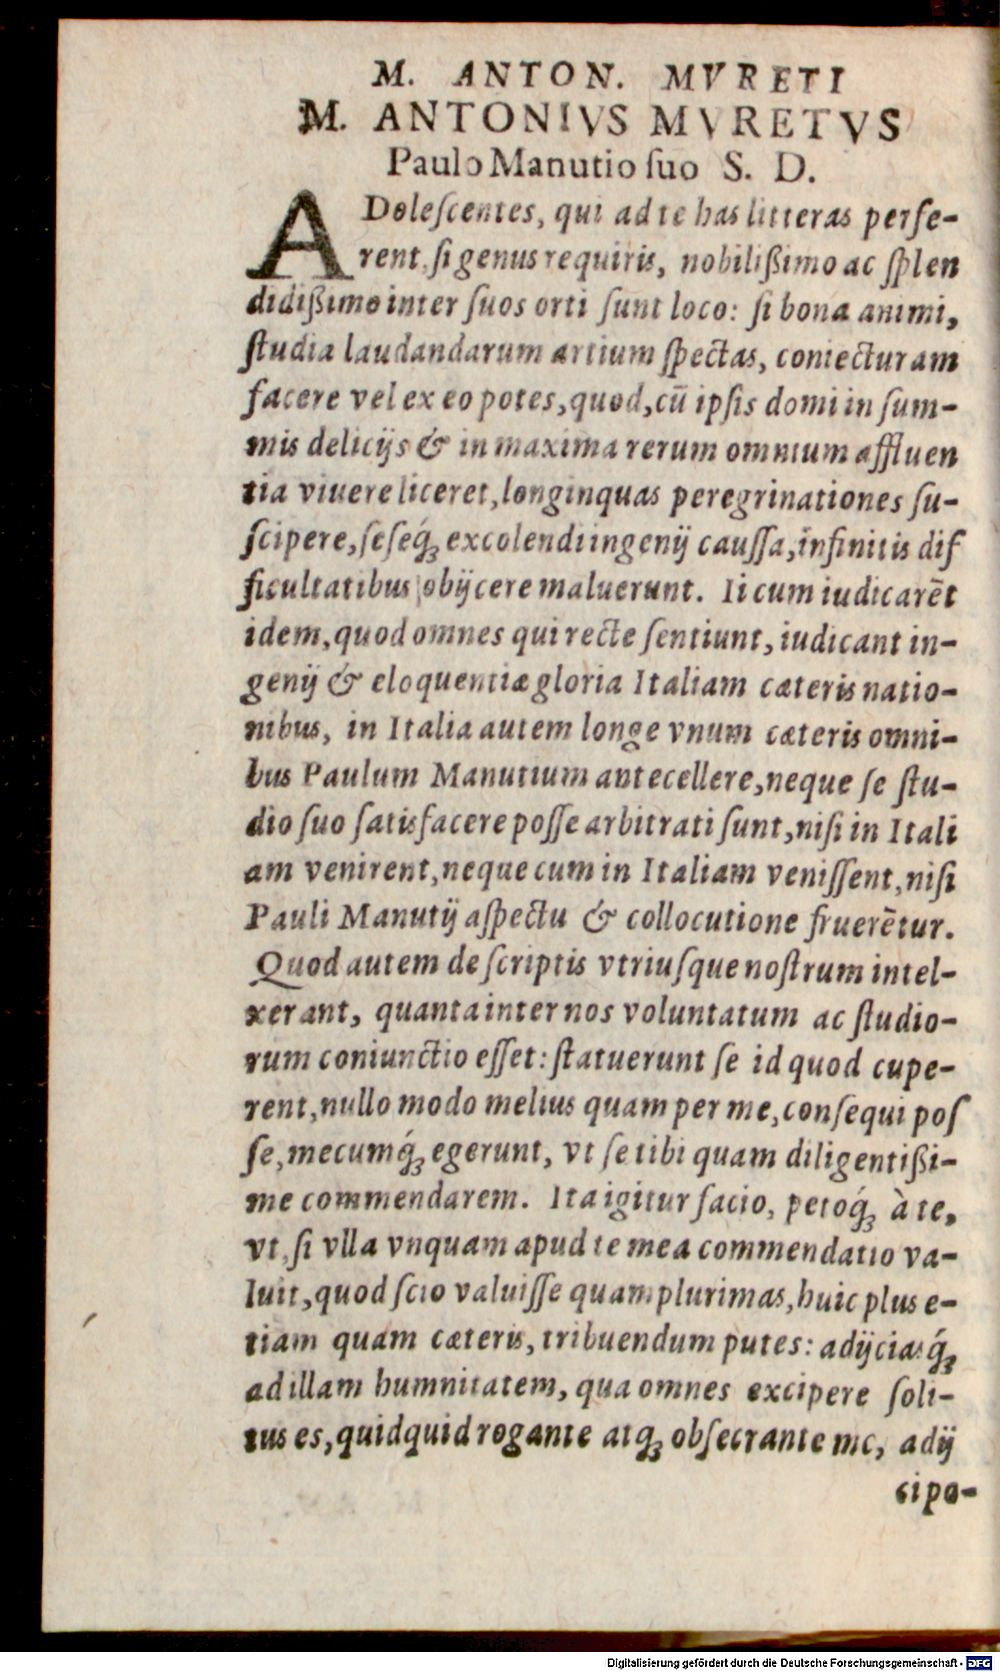 M. ANTON. MVRETI
M. ANTONIVS MVRETVS
Paulo Manutio ſuo S. D.
ADoleſcentes, qui ad te has litteras perfe-
rent, ſi genus requiris, nobilißimo ac ſplen
didißimo inter ſuos orti ſunt loco: ſi bona animi,
ſtudia laudandarum artium ſpectas, coniecturam
facere vel ex eo potes, quod, cū ipſis domi in ſum-
mis delicijs & in maxima rerum omnium affluen
tia viuere liceret, longinquas peregrinationes ſu-
ſcipere, ſeſeq́; excolendi ingenij cauſſa, infinitis dif
ficultatibus obijcere maluerunt. Ii cum iudicarēt
idem, quod omnes qui recte ſentiunt, iudicant in-
genij & eloquentiæ gloria Italiam cæteris natio-
nibus, in Italia autem longe vnum cæteris omni-
bus Paulum Manutium antecellere, neque ſe ſtu-
dio ſuo ſatisfacere poſſe arbitrati ſunt, niſi in Itali
am venirent, neque cum in Italiam veniſſent, niſi
Pauli Manutij aſpectu & collocutione fruerētur.
Quod autem de ſcriptis vtriuſque noſtrum intel-
xerant, quanta inter nos voluntatum ac ſtudio-
rum coniunctio eſſet: ſtatuerunt ſe id quod cupe-
rent, nullo modo melius quam per me, conſequi poſ
ſe, mecumq́; egerunt, vt ſe tibi quam diligentißi-
me commendarem. Ita igitur facio, petoq́; à te,
vt, ſi vlla vnquam apud te mea commendatio va-
luit, quod ſcio valuiſſe quam plurimas, huic plus e-
tiam quam cæteris, tribuendum putes: adijciasq́;
ad illam humnitatem, qua omnes excipere ſoli-
tus es, quidquid rogante atq; obſecrante me, adij
ci po-
Digitalisierung gefördert durch die Deutsche Forschungsgemeinschaft - DFG